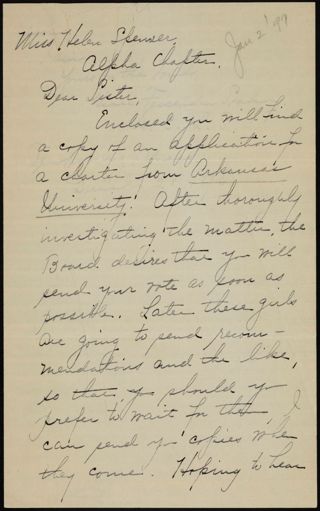 Jan 2'
Miss Helen Spenser,
Alpha Chapter.
Dear Sister,
Enclosed you will find
a copy of an application for
a charter from Arkansas
University. After thoroughly
investigating the matter, the
Board desires that you will
send your vote as soon as
possible. Later these girls
are going to send recom-
mendations and the like,
so that, you should you
prefer to wait for them, I
can send you copies when
they come. Hoping to hear